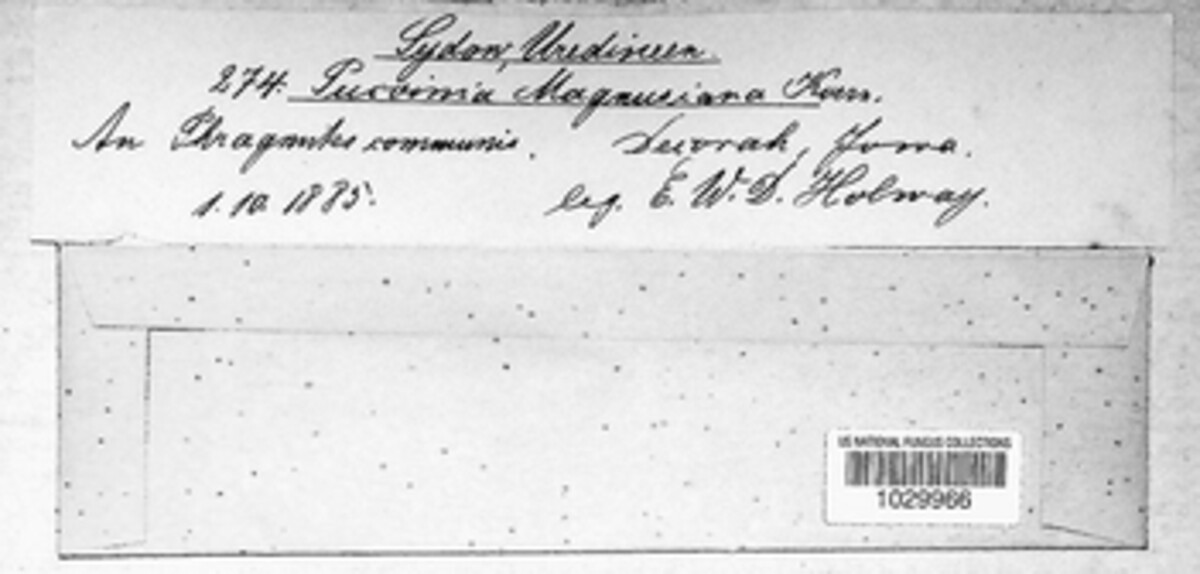 Sydow, Uredineen.
274. Puccinia Magnusiana Körn.
An Phragmites communis. Decorah, Jowa.
1.10.1885. leg. E. W. D. Holway.
US NATIONAL FUNGUS COLLECTIONS
1029966